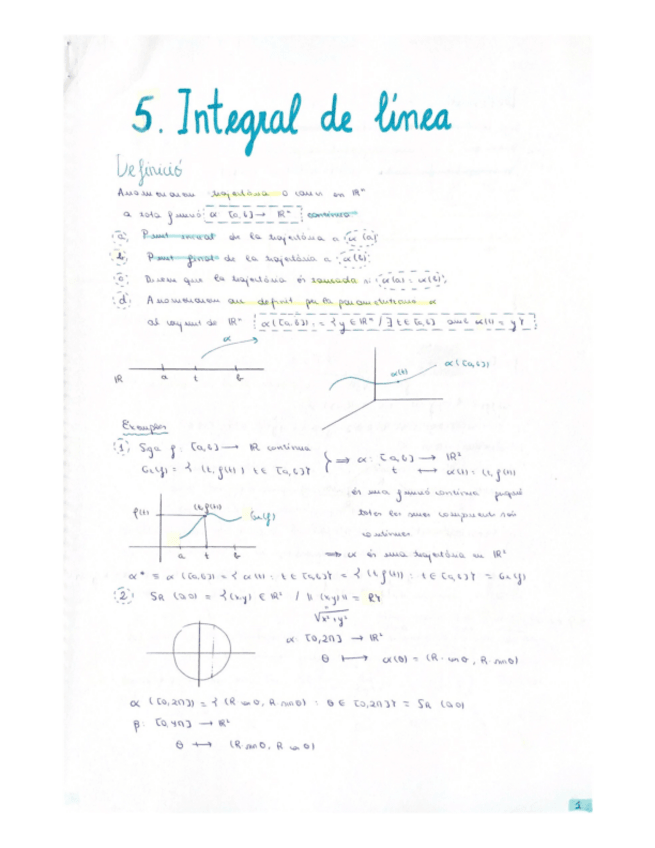 5. Integral de línea
Definició
Anomenarem trajectòria o camí en ℝⁿ
a tota funció α: [a,b] → ℝⁿ contínua
a) Punt inicial de la trajectòria a α(a)
b) Punt final de la trajectòria a α(b)
c) Direm que la trajectòria és tancada si α(a) = α(b)
d) Anomenarem arc definit per la parametrització α
al conjunt de ℝⁿ α([a,b]) := {y ∈ ℝⁿ / ∃ t ∈ [a,b] amb α(t) = y}
α
ℝ a t b
α(t) α([a,b])
Exemples
1) Siga f: [a,b] → ℝ contínua
Gr(f) = {(t, f(t)), t ∈ [a,b]}
⟹ α: [a,b] → ℝ²
t ↦ α(t) = (t, f(t))
és una funció contínua perquè
totes les seues components són
contínues
⟹ α és una trajectòria en ℝ²
f(t) (t, f(t)) Gr(f)
a t b
α* ≡ α([a,b]) = {α(t) : t ∈ [a,b]} = {(t, f(t)) : t ∈ [a,b]} = Gr(f)
2) S_R (0,0) = {(x,y) ∈ ℝ² / ‖(x,y)‖ = R}
√x²+y²
α: [0,2π] → ℝ²
θ ↦ α(θ) = (R · cos θ, R sin θ)
α([0,2π]) = {(R cos θ, R sin θ) : θ ∈ [0,2π]} = S_R (0,0)
β: [0,4π] → ℝ²
θ ↦ (R sin θ, R cos θ)
1